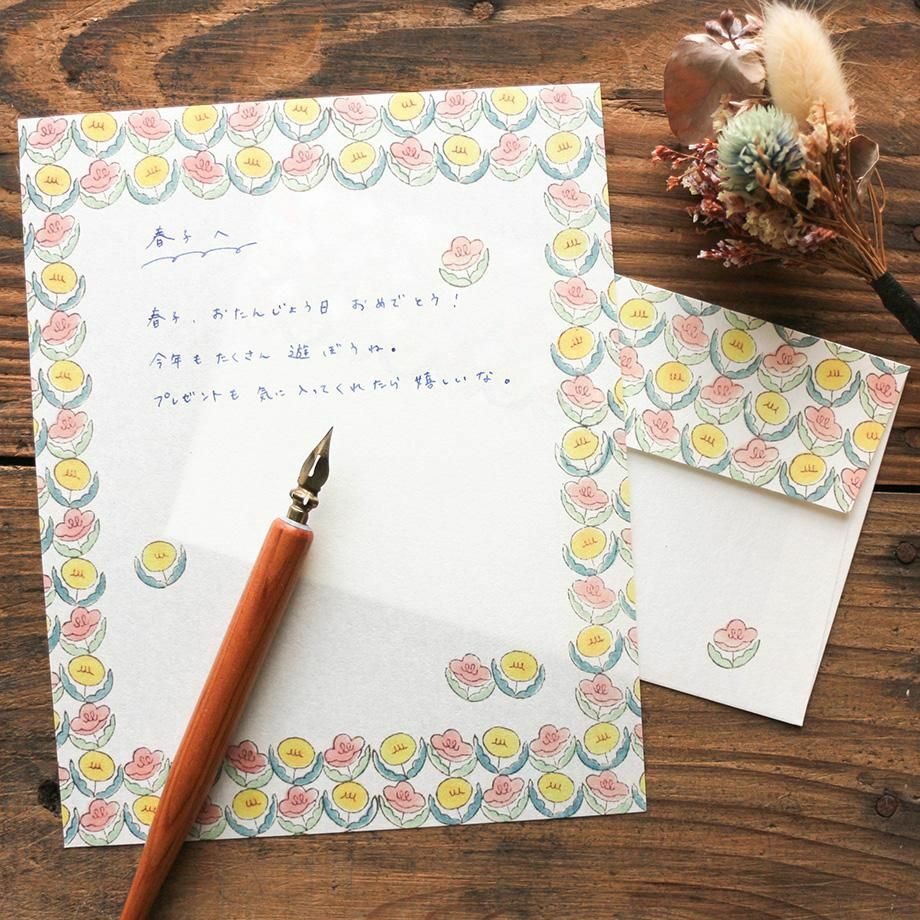 春子へ
春子、おたんじょう日 おめでとう！
今年も たくさん 遊ぼうね。
プレゼントも 気に入ってくれたら 嬉しいな。